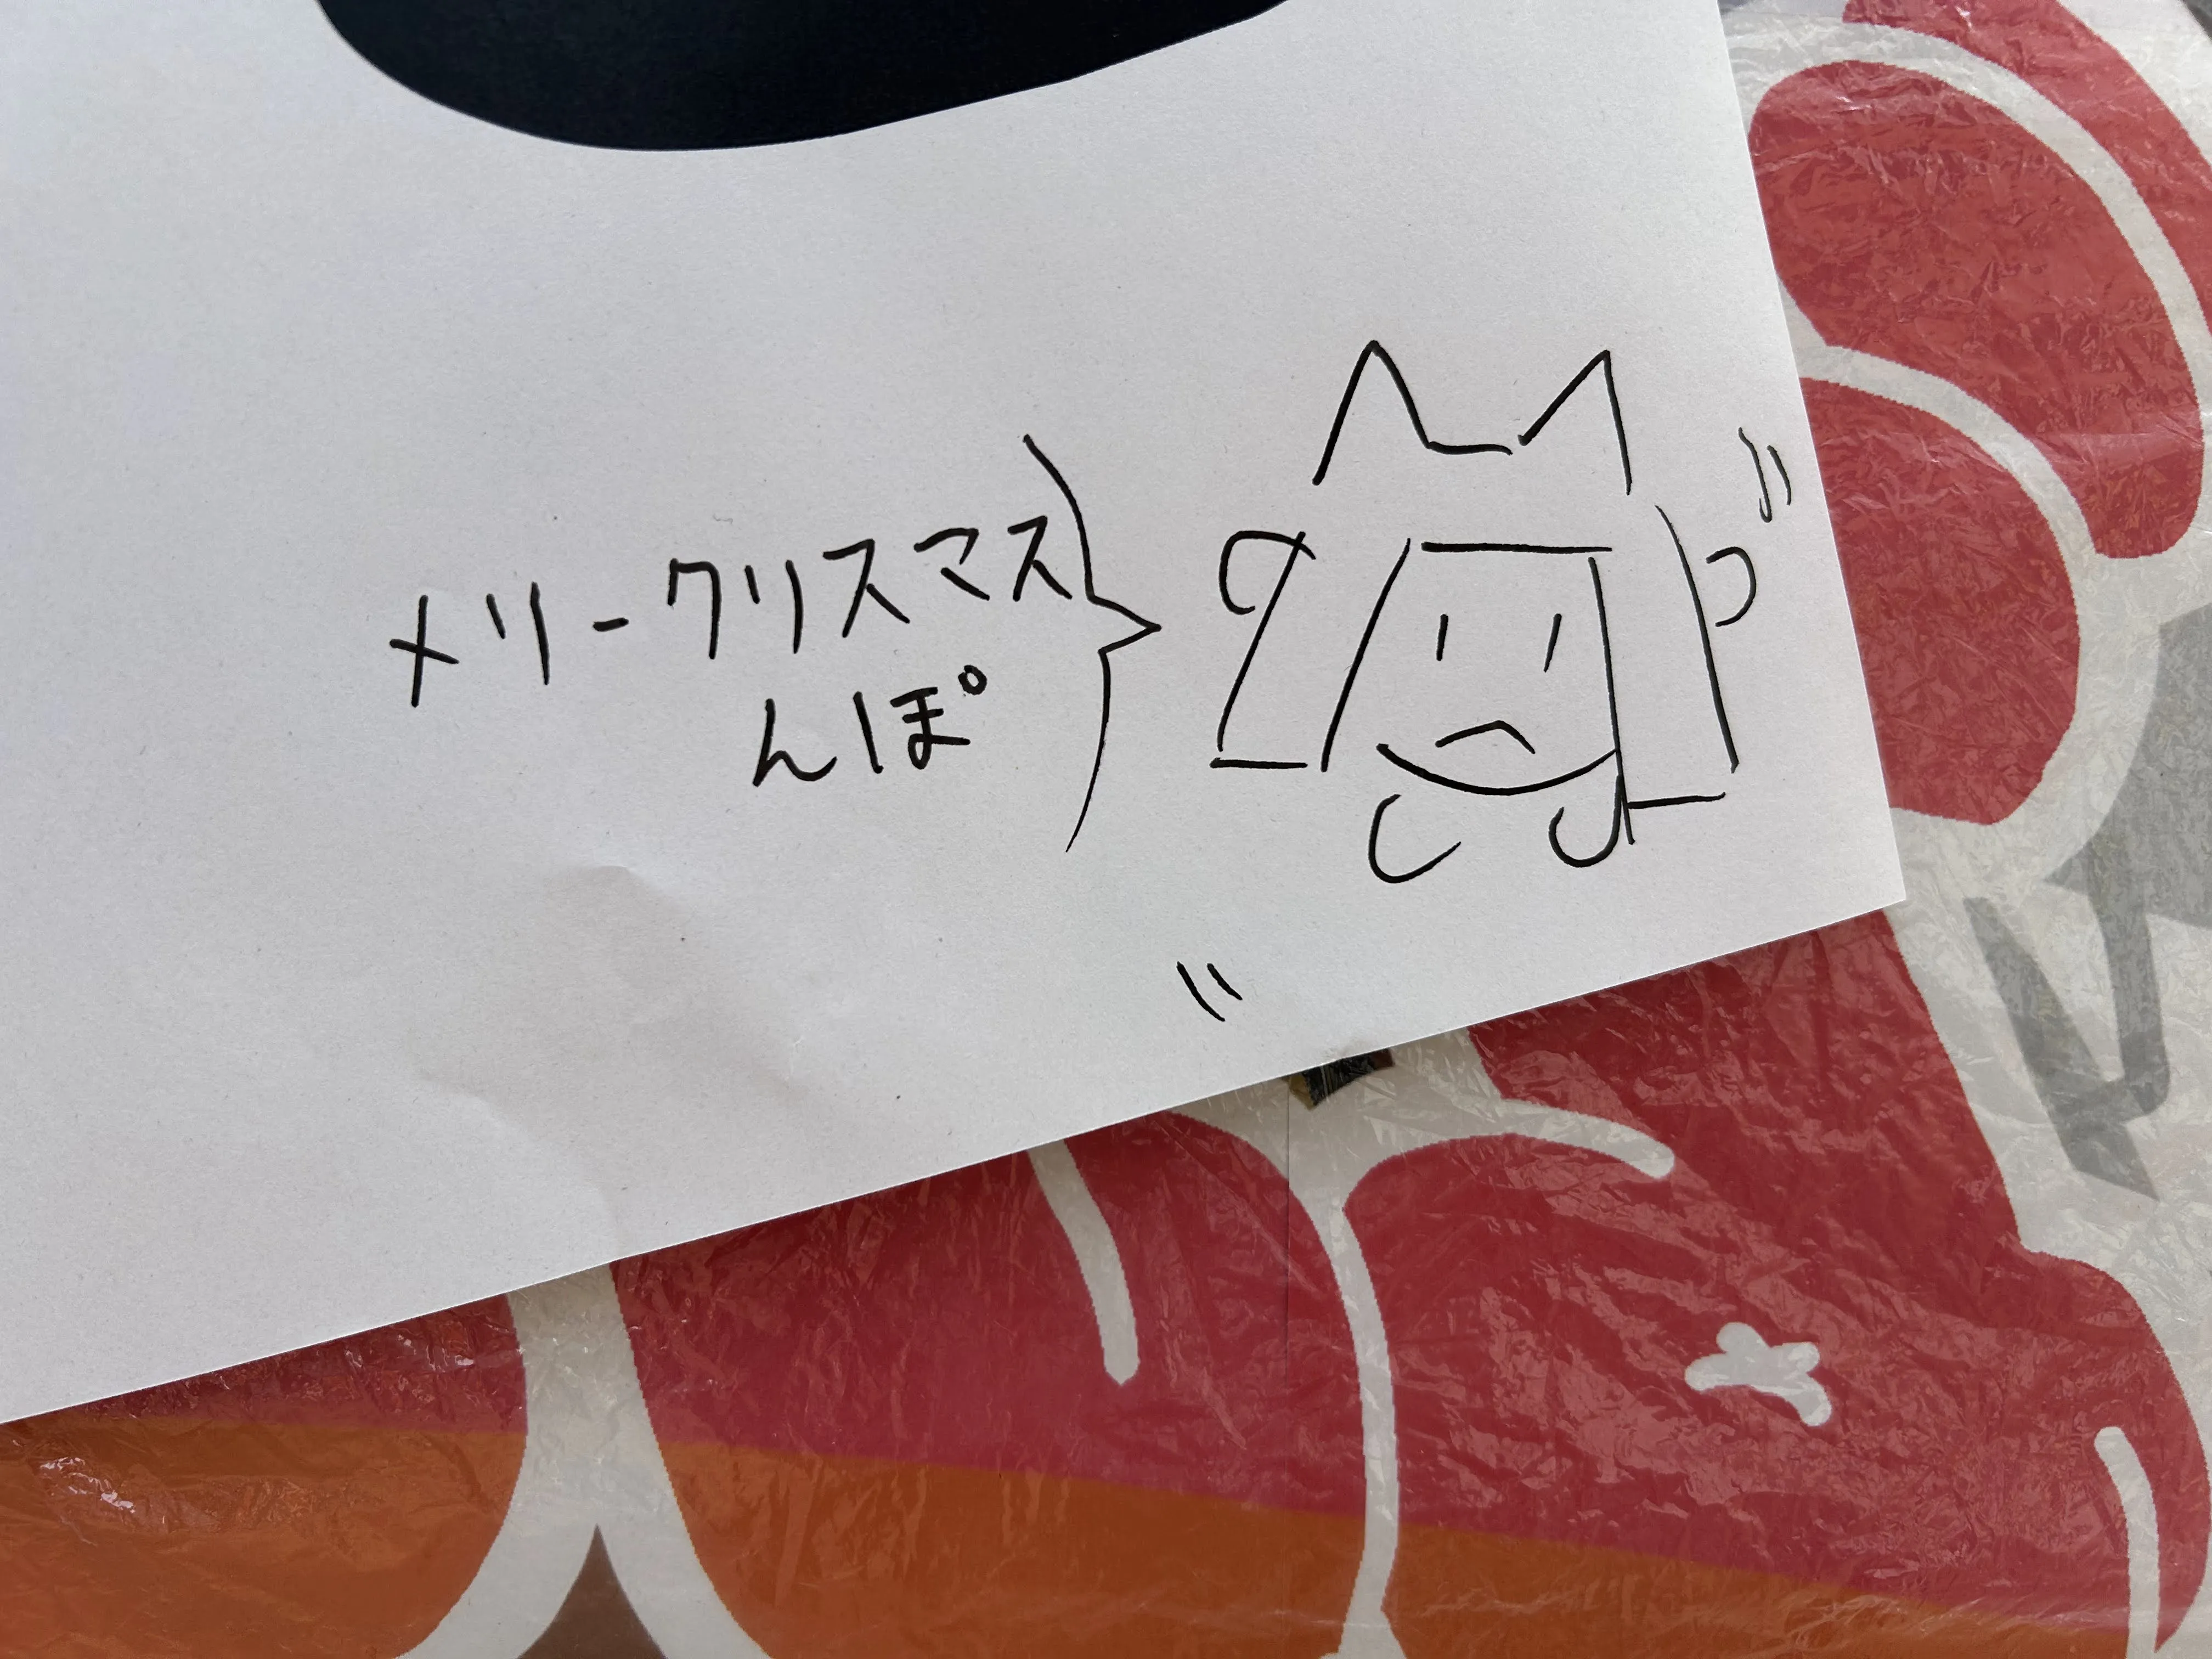 メリークリスマス
んぽ